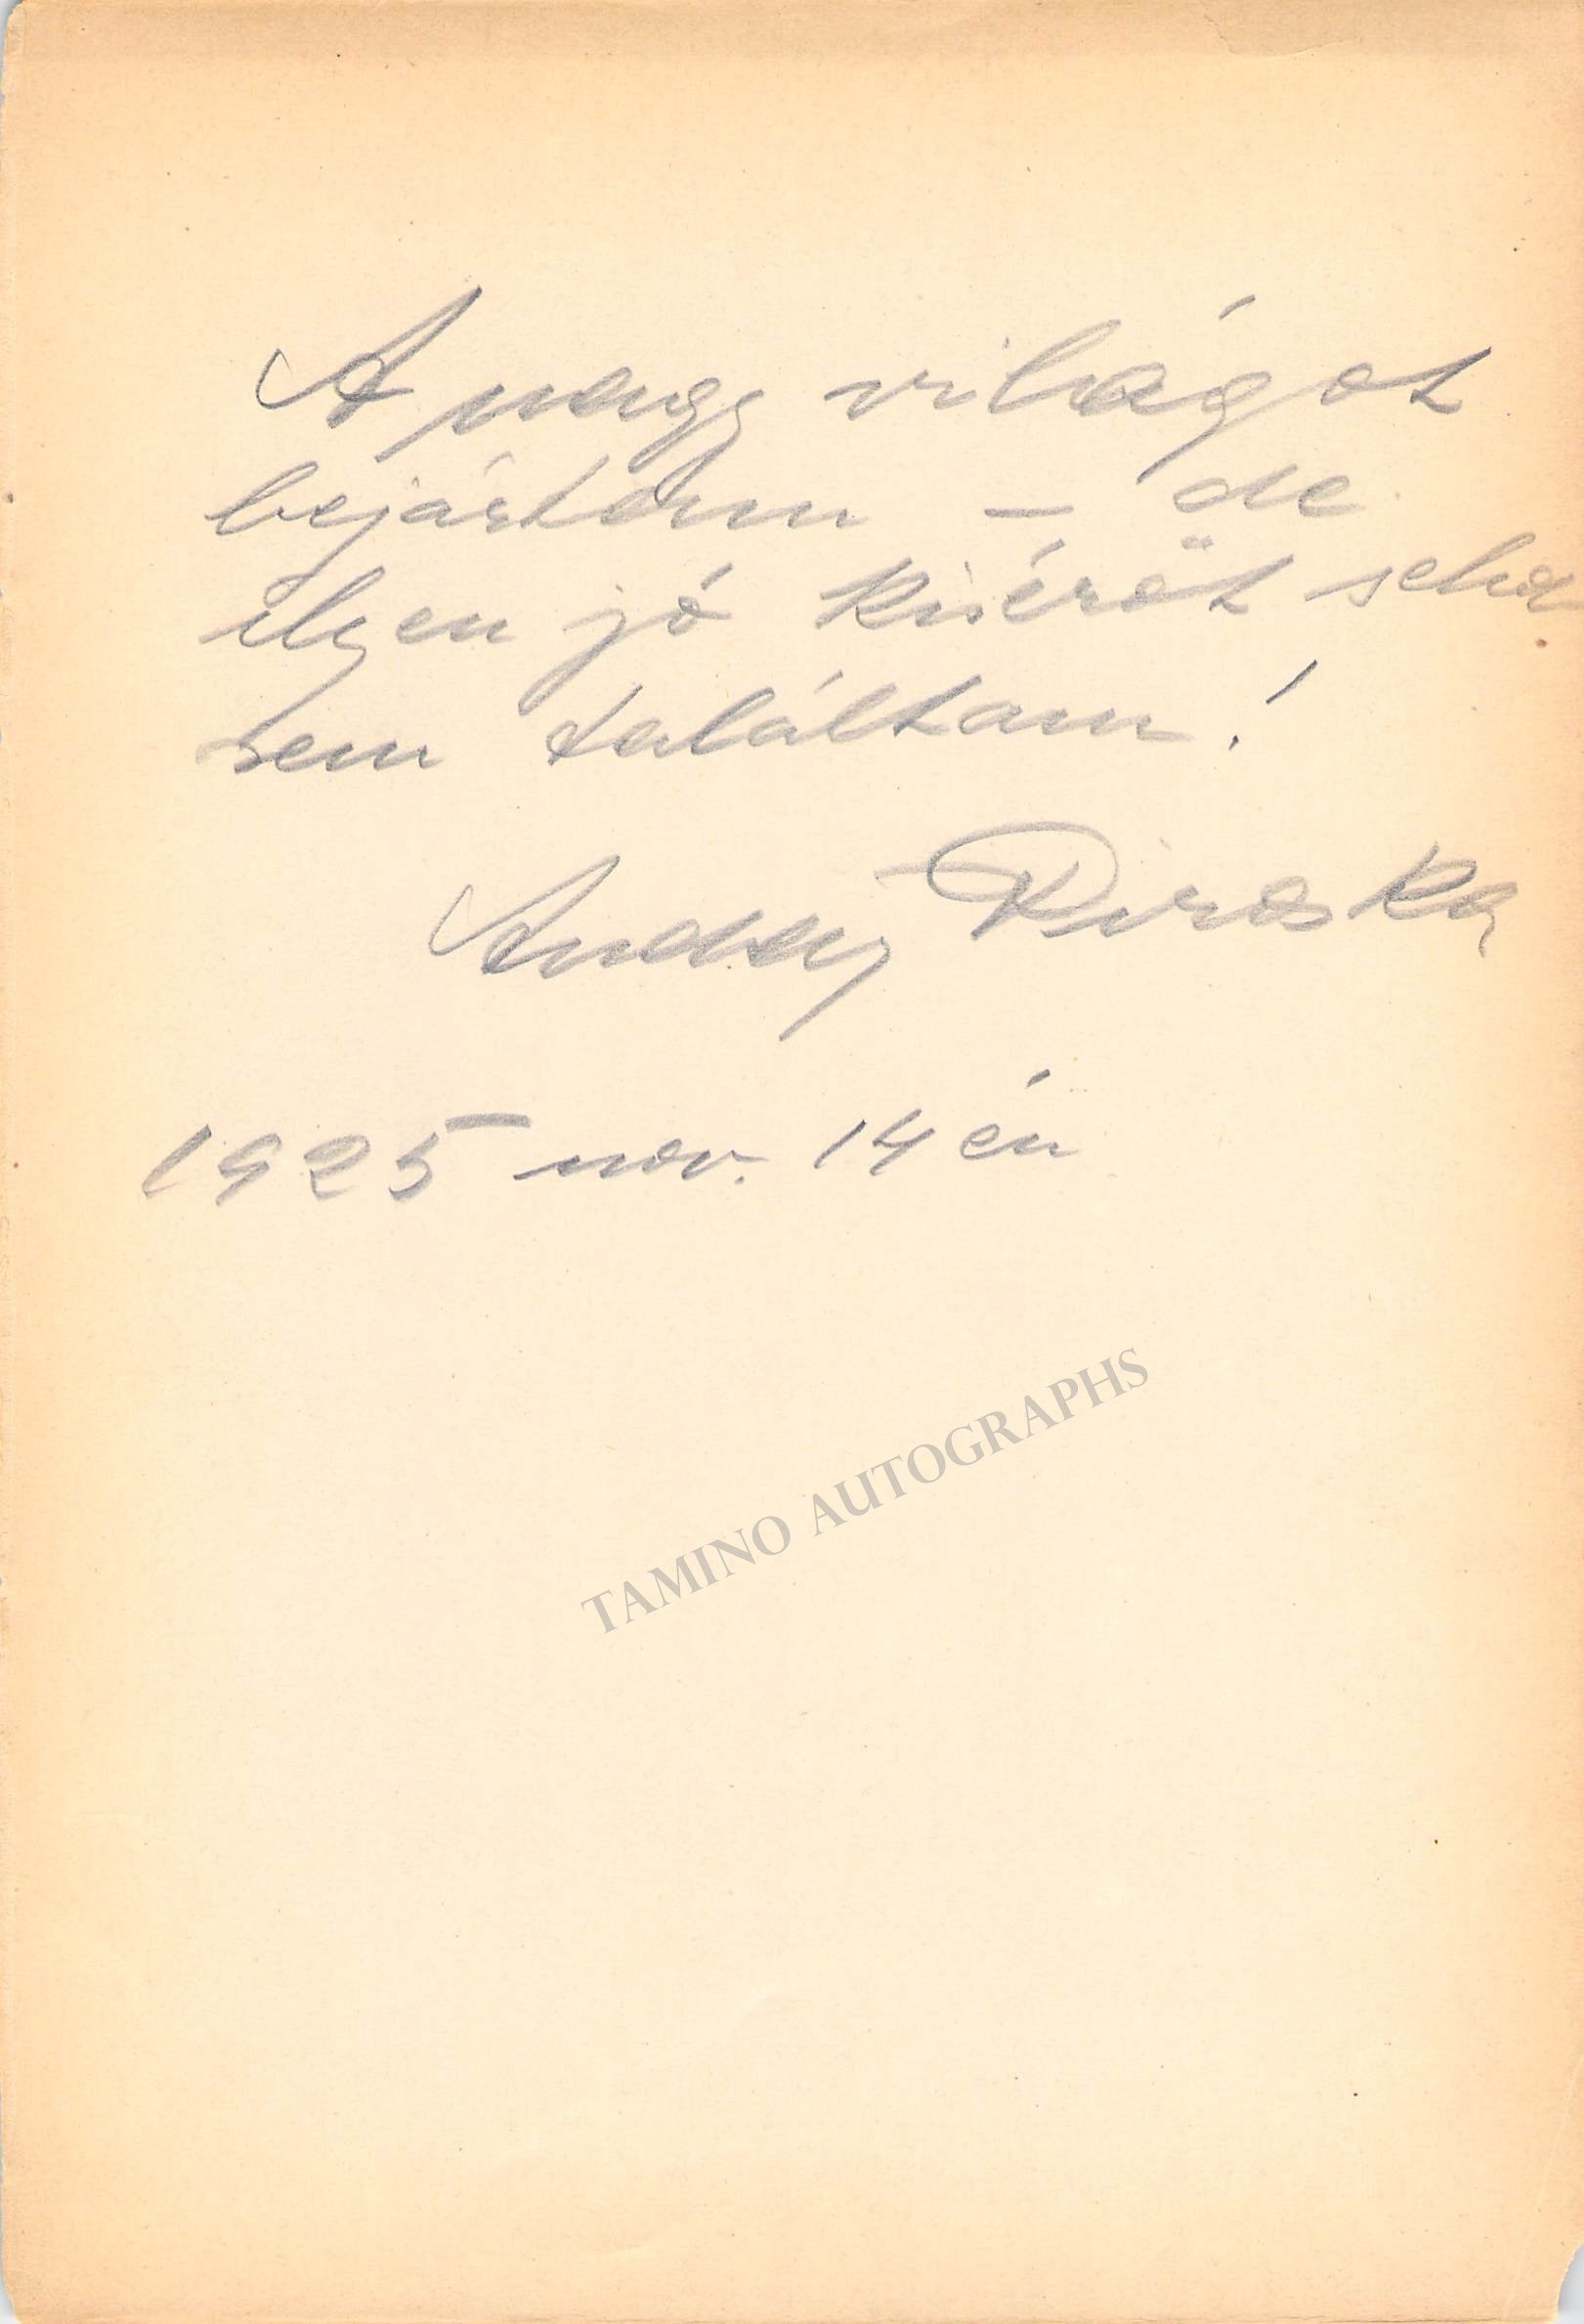 A nagy világot
bejártam – de
ilyen jó kisérőt seho
sem találtam!
Anday Piroska
1925 nov. 14 én
TAMINO AUTOGRAPHS